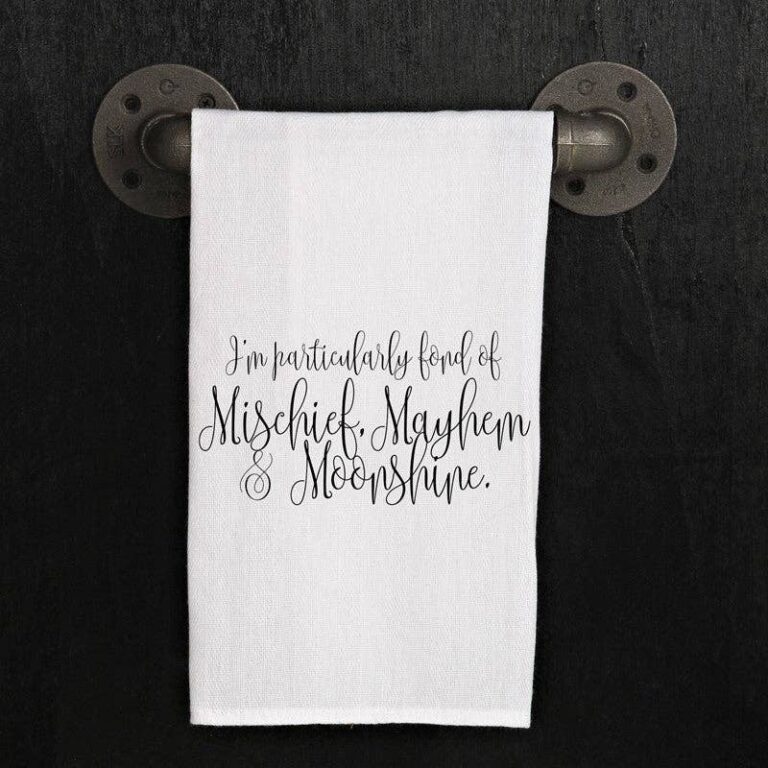 I'm particularly fond of
Mischief, Mayhem
& Moonshine.